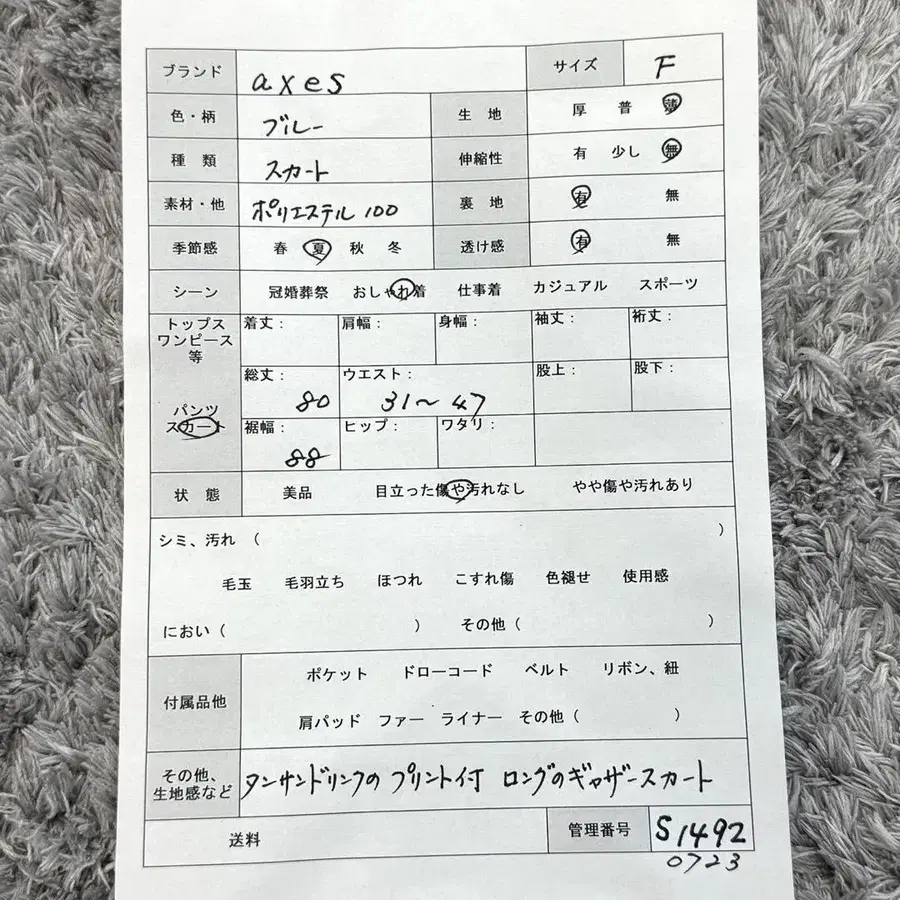 ブランド axes サイズ F
色・柄 ブルー 生地 厚 普 薄
種類 スカート 伸縮性 有 少し 無
素材・他 ポリエステル 100 裏地 有 無
季節感 春 夏 秋 冬 透け感 有 無
シーン 冠婚葬祭 おしゃれ着 仕事着 カジュアル スポーツ
トップス
ワンピース
等
着丈: 肩幅: 身幅: 袖丈: 裄丈:
パンツ
スカート
総丈: 80 ウエスト: 31～47 股上: 股下:
裾幅: 88 ヒップ: ワタリ:
状態 美品 目立った傷や汚れなし やや傷や汚れあり
シミ、汚れ ( )
毛玉 毛羽立ち ほつれ こすれ傷 色褪せ 使用感
におい ( ) その他 ( )
付属品他 ポケット ドローコード ベルト リボン、紐
肩パッド ファー ライナー その他 ( )
その他、
生地感など
タンサンドリンクの プリント付 ロングのギャザースカート
送料 管理番号 S1492
0723